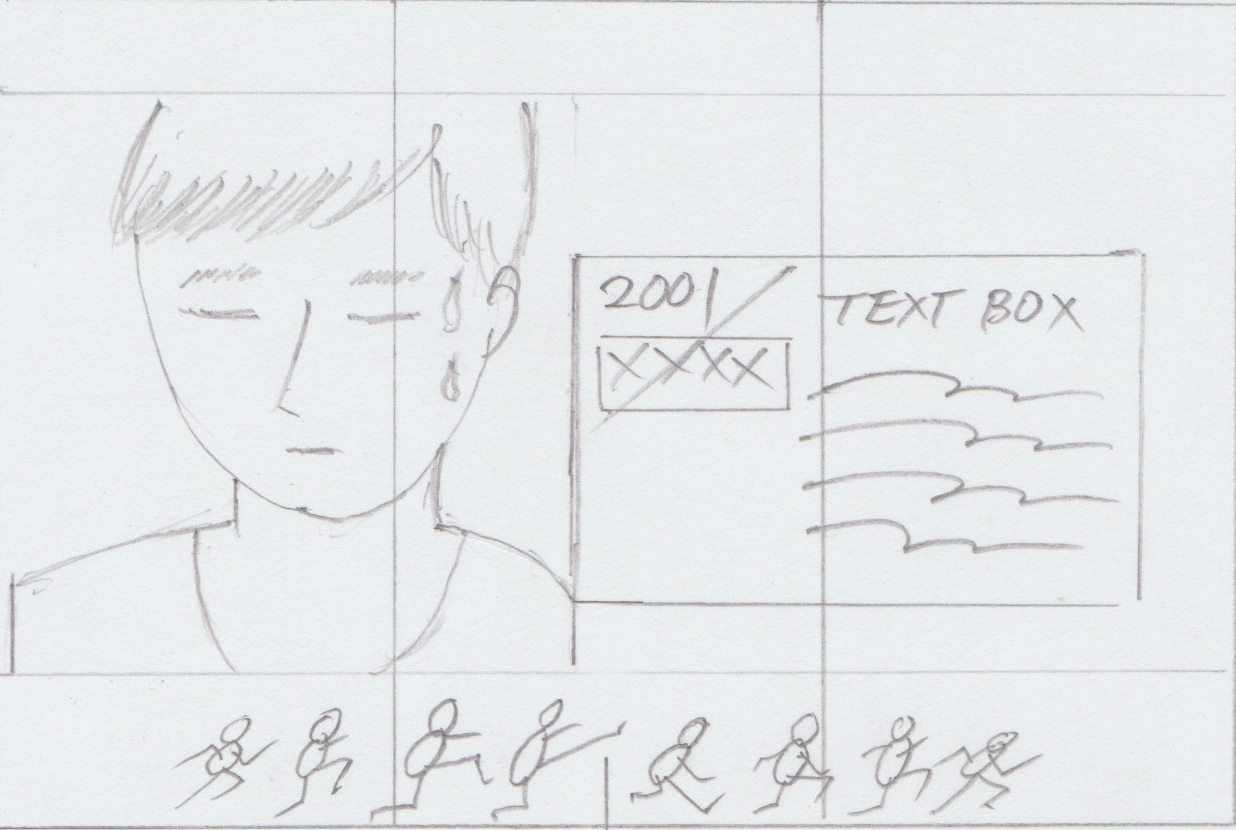 2001
XXXX
TEXT BOX